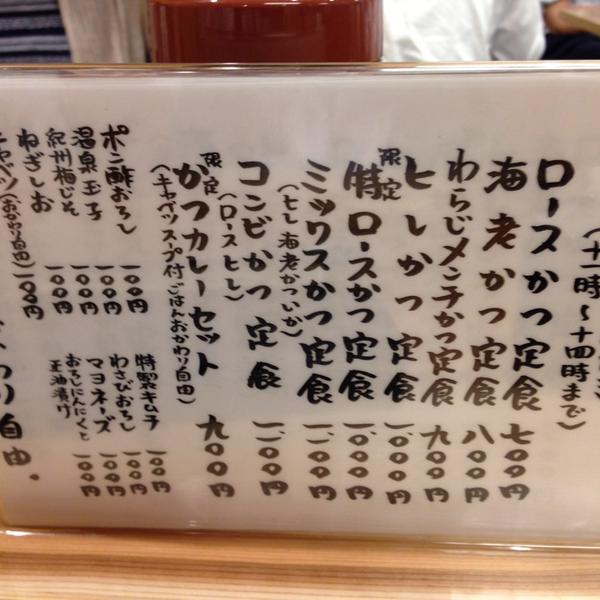 (十一時〜十四時まで)
ロースかつ定食 七〇〇円
海老かつ定食 八〇〇円
わらじメンチかつ定食 九〇〇円
限定 ヒレかつ定食 一〇〇〇円
限定 特ロースかつ定食 一〇〇〇円
ミックスかつ定食 一一〇〇円
(ヒレ 海老かつ いか)
コンビかつ定食 一一〇〇円
(ロース ヒレ)
限定 かつカレーセット 九〇〇円
(キャベツスープ付 ごはんおかわり自由)
ポン酢おろし 一〇〇円
温泉玉子 一〇〇円
紀州梅じそ 一〇〇円
ねぎしお 一〇〇円
キャベツ(おかわり自由)一〇〇円
特製キムチ 一〇〇円
わさびおろし 一〇〇円
マヨネーズ 一〇〇円
おろしにんにくと
王油漬け 一〇〇円
わり自由。